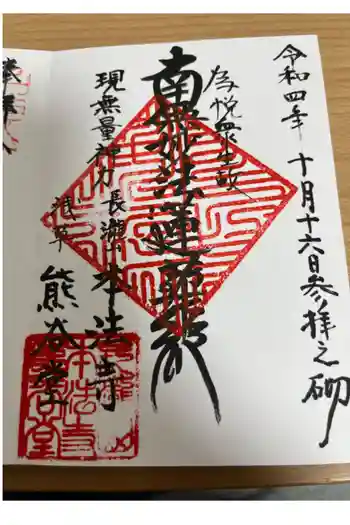 令和四年 十月十六日参拝之砌
為悦衆生故
南無妙法蓮華経
現無量神力 長瀧山 本法寺
浅草 熊谷堂
奉拝